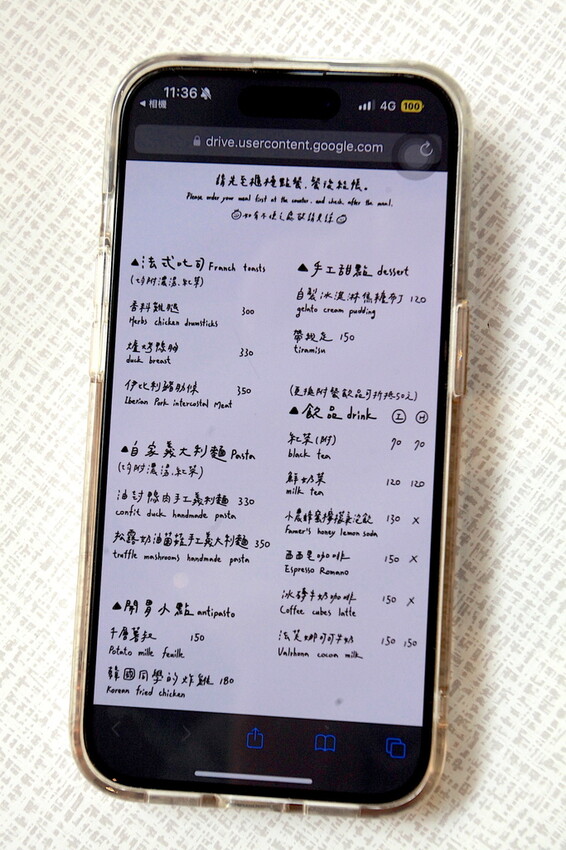 11:36
相機
4G 100
drive.usercontent.google.com
請先至櫃檯點餐、餐後結帳。
Please order your meal first at the counter, and check, after the meal.
如有不便之處敬請見諒
▲法式吐司 French toasts
(均附濃湯、紅茶)
香料雞腿 300
Herbs chicken drumsticks
爐烤鴨胸 330
duck breast
伊比利豬肋條 350
Iberian Pork intercostal Meat
▲自家義大利麵 Pasta
(均附濃湯、紅茶)
油封鴨肉手工義利麵 330
confit duck handmade pasta
松露奶油菌菇手工義大利麵 350
truffle mashrooms handmade pasta
▲開胃小點 antipasto
千層薯叔 150
Potato mille feuille
韓國同學的炸雞 180
Korean fried chicken
▲手工甜點 dessert
自製冰淇淋焦糖布丁 120
gelato cream pudding
帶我走 150
tiramisu
(更換附餐飲品可折抵50元)
▲飲品 drink I H
紅茶(附) 70 70
black tea
鮮奶茶 120 120
milk tea
小農蜂蜜檸檬氣泡飲 130 X
Famer's honey lemon soda
西西里咖啡 150 X
Espresso Romano
冰磚牛奶咖啡 150 X
Coffee cubes latte
法芙娜可可牛奶 150 150
Valrhona cocoa milk